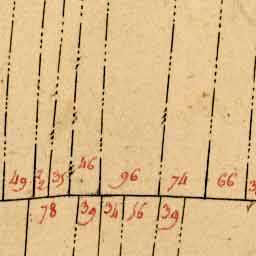 46
49 35 96 74 66
78 39 34 56 39